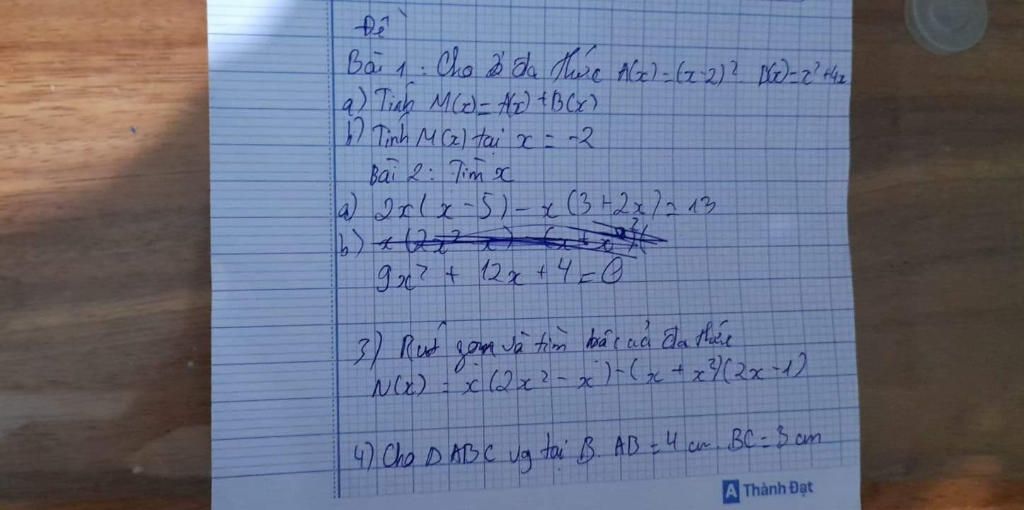 Đề
Bài 1: Cho 2 đa thức A(x)=(x-2)² B(x)=x²+4x
a) Tính M(x)=A(x)+B(x)
b) Tính M(x) tại x = -2
Bài 2: Tìm x
a) 2x(x-5)-x(3+2x)=13
b)
9x² + 12x + 4 = 0
3) Rút gọn và tìm bậc của đa thức
N(x) = x(2x²-x)-(x+x²)(2x-1)
4) Cho Δ ABC vg tại B. AB = 4 cm. BC = 3 cm
A Thành Đạt